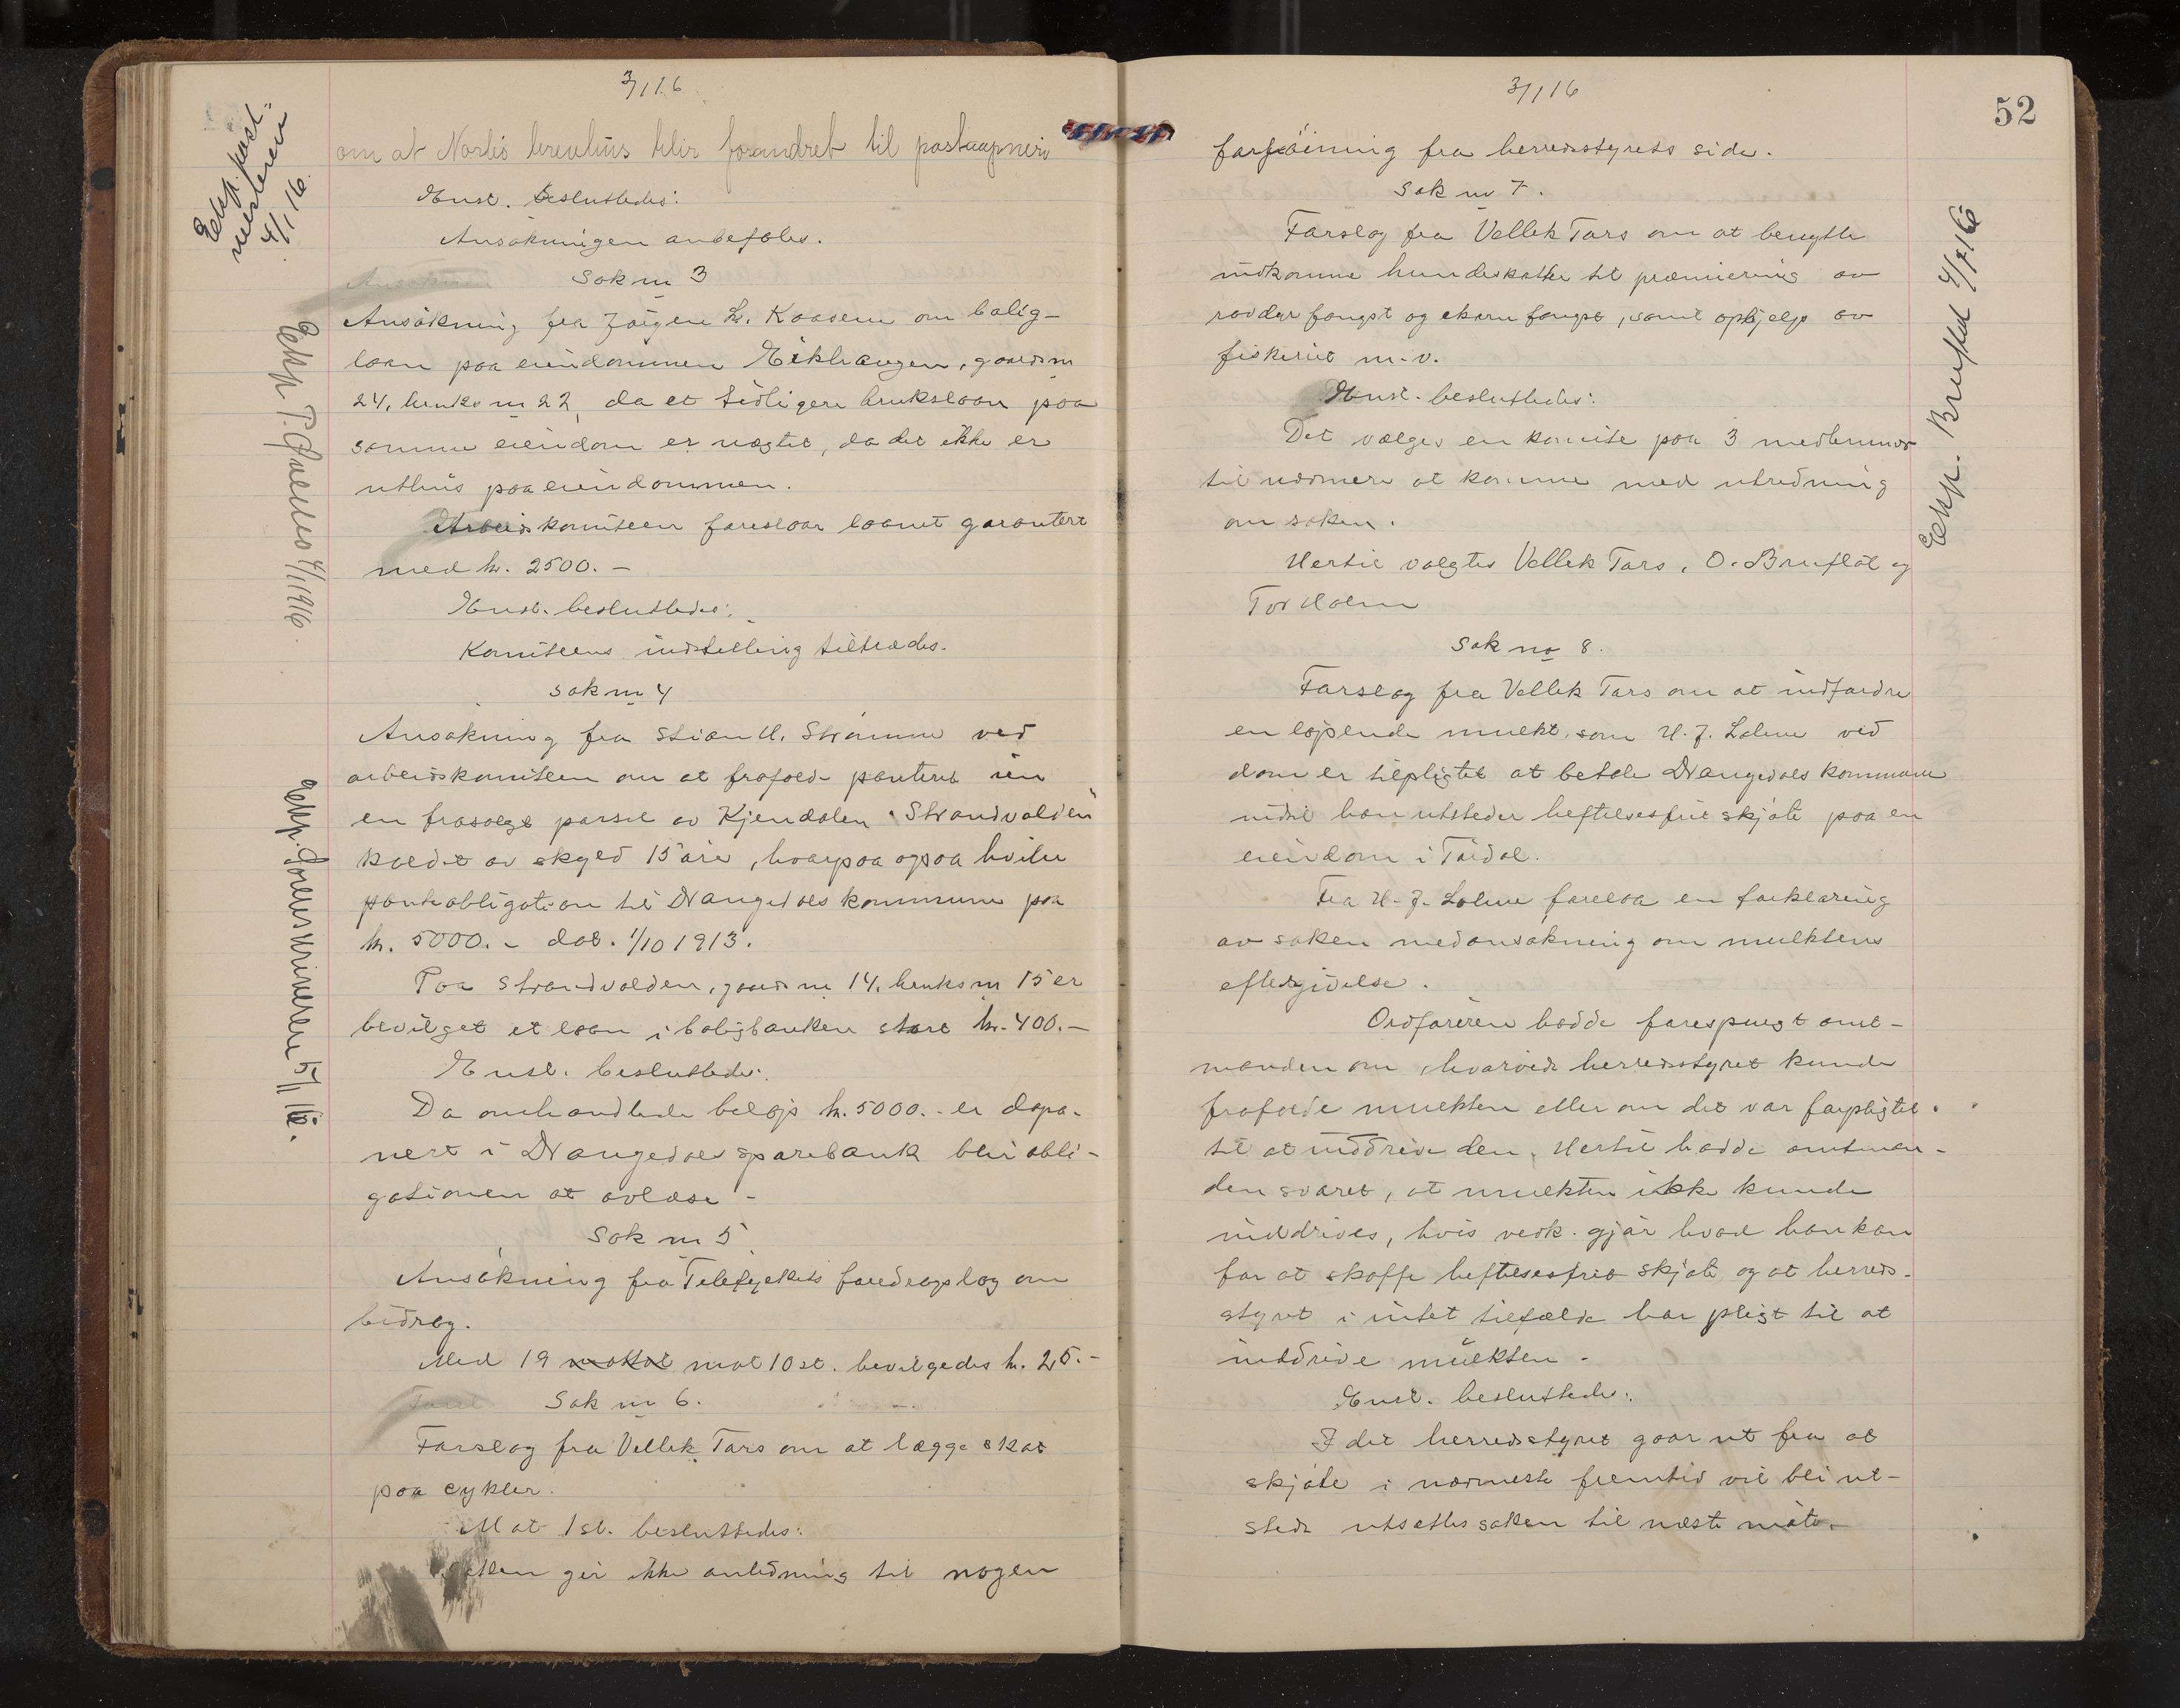 3/1 16
om at Norbø brevhus blir forandret til postaapneri
Enst. besluttedes:
Ansøkningen anbefales.
Sak no 3
Ansøkning fra Jørgen H. Kaasene om bolig-
laan paa eiendommen Eikhaugen, gaardsno
24, bruksno 22, da et tidligere bruksloan paa
samme eiendom er nægtet, da det ikke er
uthus paa eiendommen.
Arbeidskomiteen foreslaar laanet garantert
med kr. 2500.-
Enst. besluttedes:
Komiteens indstilling tiltrædes.
Sak no 4
Ansøkning fra Stian H. Strømme ved
arbeidskomiteen om at frafalde panteret i en
en frasolgt parsel av Kjendalen "Strandvolden"
kaldet av skyld 15 øre, hvorpaa ogsaa hviler
panteobligation til Drangedals kommune paa
kr. 5000.- dat. 1/10 1913.
Paa Strandvolden, gaards no 14, bruksno 15 er
bevilget et laan i boligbanken stort kr. 400.-
Enst. besluttedes:
Da omhandlede beløp kr. 5000.- er depo-
nert i Drangedals sparebank blir obli-
gationen at avlæse -
Sak no 5
Ansøkning fra Telefylkets foredragslag om
bidrag.
Med 19 mot 10 st. bevilgedes kr. 25.-
Sak no 6.
Forslag fra Vellek Tørs om at lægge skat
paa cykler.
Mot 1 st. besluttedes:
Saken gir ikke anledning til nogen
Eksp. post-
mesteren
4/1 16.
Eksp. 4/1 1916.
Eksp. Sorenskriveren 5/1 16.
3/1 16
52
forføining fra herredsstyrets side.
Sak no 7.
Forslag fra Vellek Tørs om at benytte
indkomne hundeskatter til præmiering av
rovdyrfangst og ekornfangst, samt ophjelp av
fiskeriet m.v.
Enst. besluttedes:
Det vælges en komite paa 3 medlemmer
til nærmere at komme med utredning
om saken.
Hertil valgtes Vellek Tørs, O. Brufløt og
Tor Holm
Sak no 8.
Forslag fra Vellek Tørs om at indfordre
en løpende mulkt, som H. J. Lohne ved
dom er tilpligtet at betale Drangedals kommune
indtil han utsteder heftelsesfrit skjøte paa en
eiendom i Tørdal.
Fra H. J. Lohne forelaa en forklaring
av saken med ansøkning om mulktens
eftergivelse.
Ordføreren hadde forespurgt amt-
manden om, hvorvidt herredsstyret kunde
frafalde mulkten eller om det var forpligtet
til at inddrive den. Hertil hadde amtman-
den svaret, at mulkten ikke kunde
inddrives, hvis vedk. gjør hvad han kan
for at skaffe heftelsesfrit skjøte og at herreds-
styret i intet tilfælde har pligt til at
inddrive mulkten.
Enst. besluttedes:
I det herredsstyret gaar ut fra at
skjøte i nærmeste fremtid vil bli ut-
stedt utsættes saken til næste møte.-
Eksp. Brufløt 4/1 16